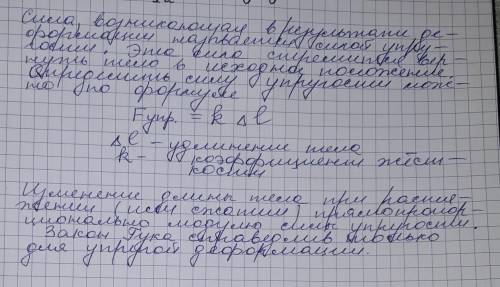 Сила возникающая в результате де-
формации называется силой упру-
гости. Эта сила стремится вер-
нуть тело в исходное положение.
Определить силу упругости мож-
но по формуле
Fупр. = k Δl
Δl - удлинение тела
k - коэффициент жёст-
кости
Изменение длины тела при растя-
жении (или сжатии) прямопропор-
ционально модулю силы упругости.
Закон Гука справедлив только
для упругой деформации.